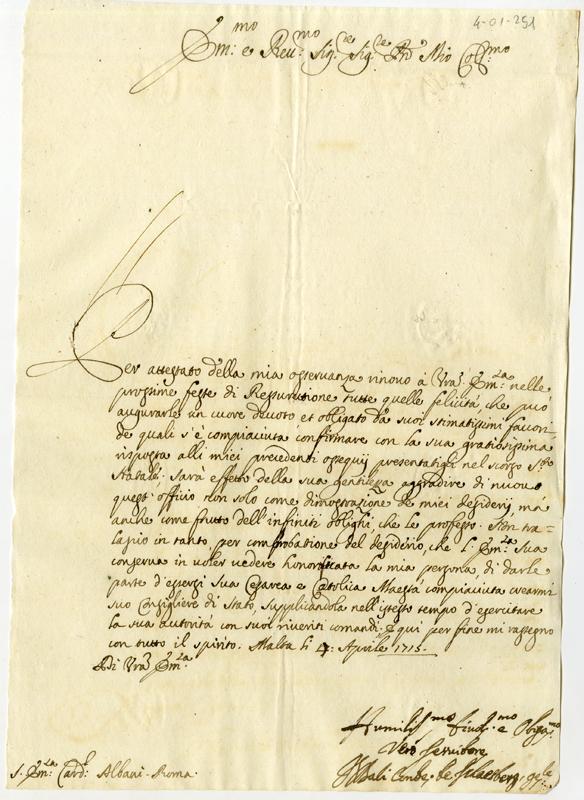 4-01-251
Em:mo e Reu:mo Sig:re Sig:re Pnē Mio Coll:mo
Per attestato della mia osseruanza rinouo à Vrā Em:za nelle
prossime feste di Ressurutione tutte quelle felicità, che può
augurarle un cuore deuoto et obligato dà suoi stimatissimi fauori
de quali s'è compiaciuta confirmare con la sua gratiosissima
risposta alli miei precedenti ossequij presentatigli nel scorso Sto
Natale: sarà effetto della sua gentilezza aggradire di nuouo
quest'officio non solo come dimostrazione de miei desiderij, mà
anche come frutto dell'infiniti oblighi, che le professo. Non tra=
lascio in tanto per comprobatione del desiderio, che l'Em:za Sua
conserua in uoler uedere honorificata la mia persona, di darle
parte d'essersi Sua Cesarea e Cattolica Maestà compiaciuta crearmi
suo Consigliere di Stato, supplicandola nell'istesso tempo d'esercitare
la sua autorità con suoi riueriti comandi. E qui per fine mi rassegno
con tutto il spirito. Malta li 4: Aprile 1715.
Di Vrā Em:za
Humiliss:mo Diuot:mo e Oblig:mo
Vero Seruitore
Bali Conte de
S. Em:za Card: Albani - Roma.